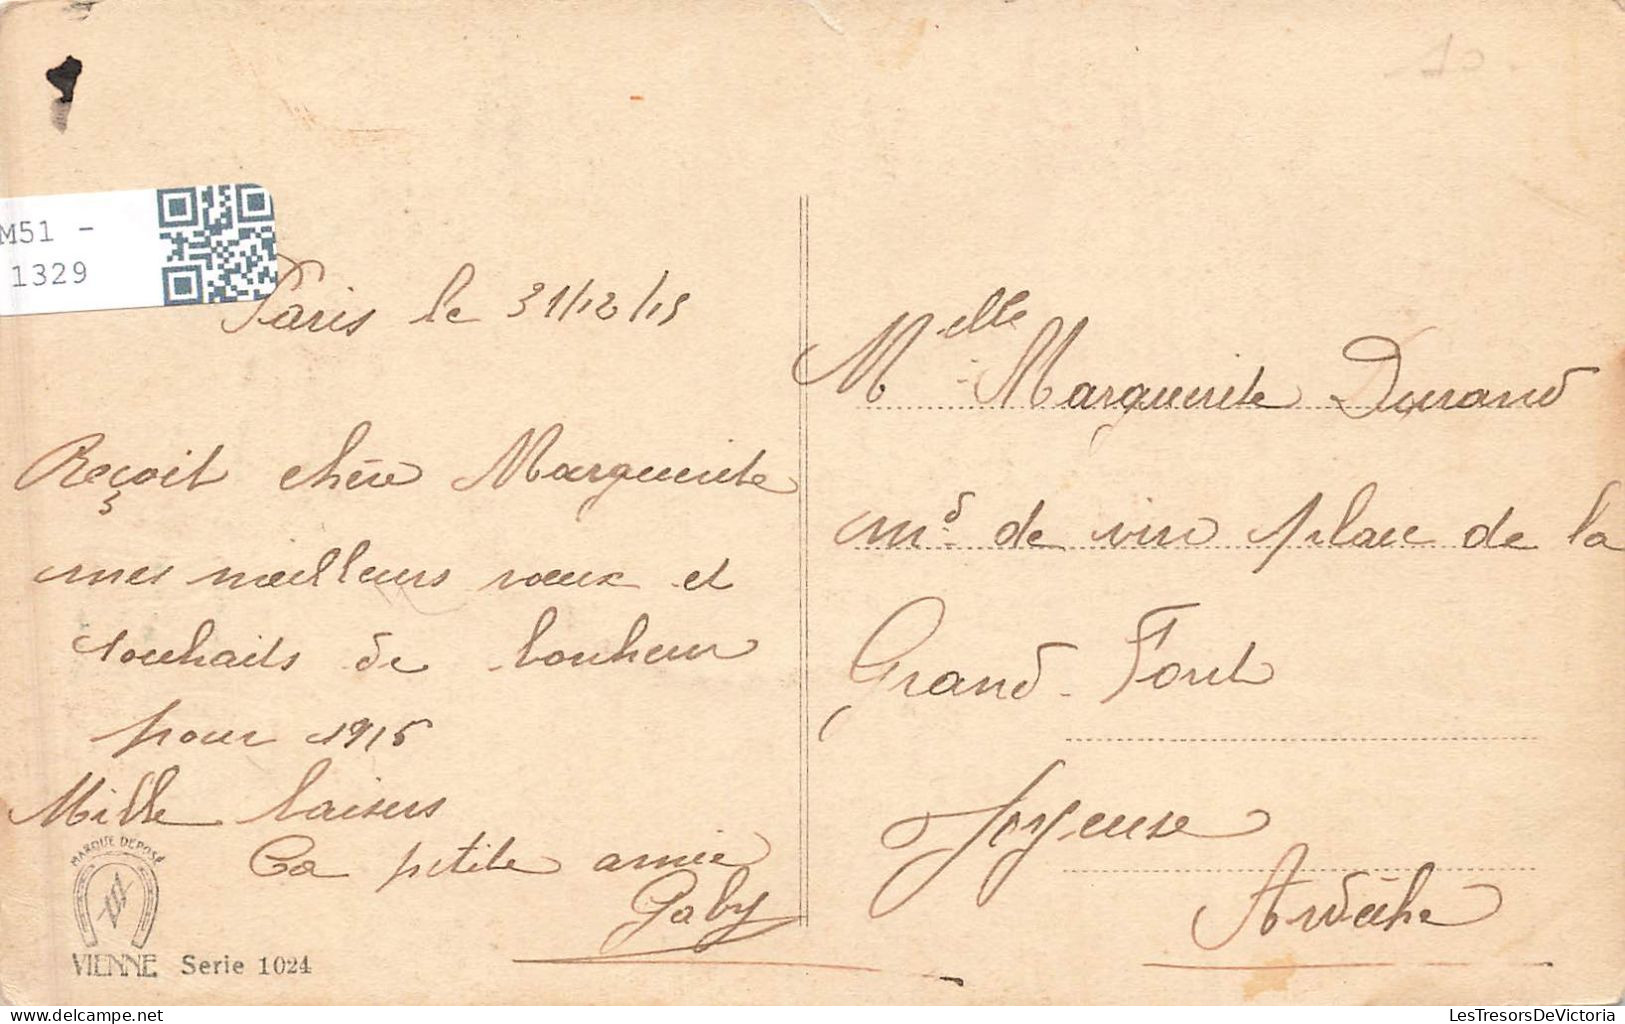 M51 -
1329
Paris le 31/12/15
Reçoit chère Marguerite
mes meilleurs voeux et
souhaits de bonheur
pour 1916
Mille baisers
Ta petite amie
Gaby
MARQUE DÉPOSÉ
VIENNE Serie 1024
Melle Marguerite Durand
md de vin place de la
Grand Font
Joyeuse
Ardèche
LesTresorsDeVictoria